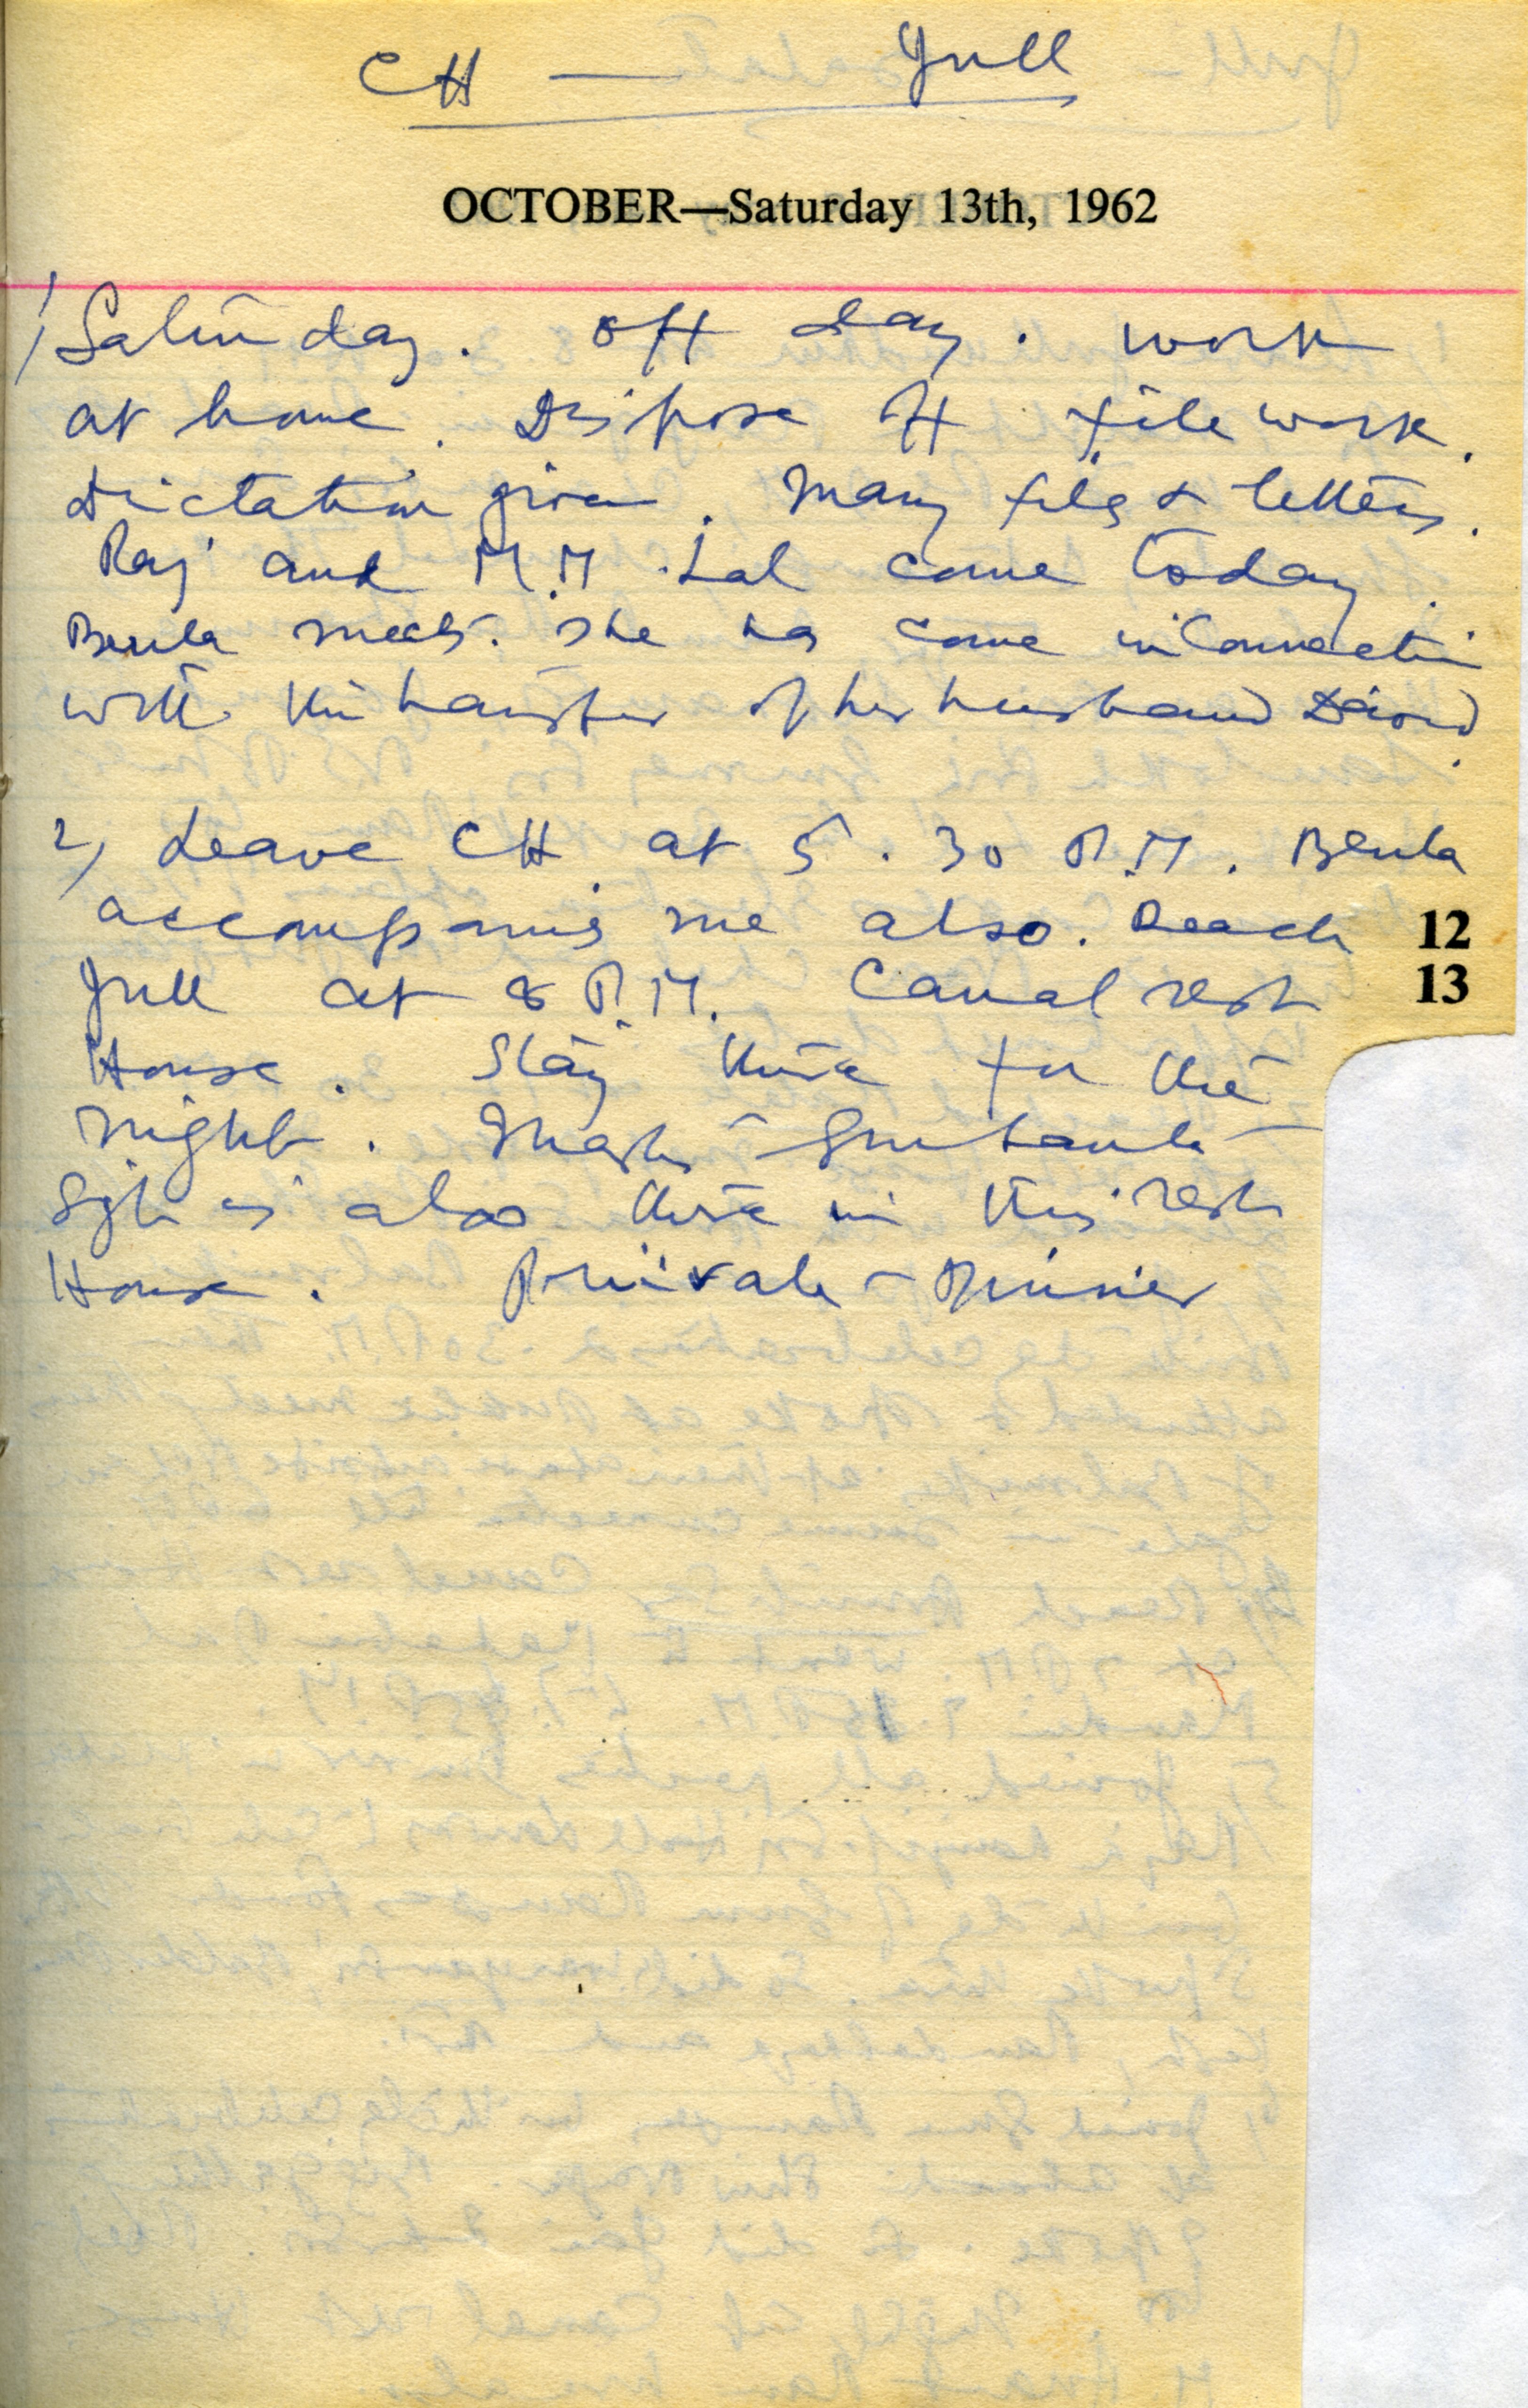 CH — Jull
OCTOBER—Saturday 13th, 1962
1) Saturday. Off day. Work
at home. Dispose off file work.
Dictation given. Many files & letters.
Raj and M.M. Lal come today.
Beula meets. She has come in connection
with the transfer of her husband David.
2) Leave CH at 5.30 P.M. Beula
accompanies me also. Reach 12
Jull at 8 P.M. Canal rest 13
House. Stay there for the
night. Master Gurbanta
Sgh is also there in this rest
House. Private - Dinner